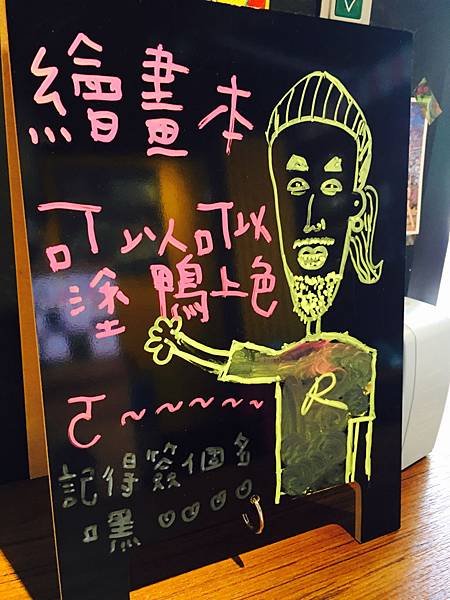 繪畫本
可以可以
塗鴨上色
ㄛ~~~~~
記得簽個名
嘿♡♡♡♡
R